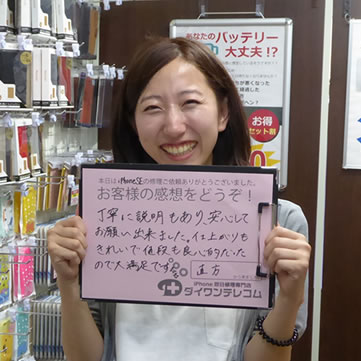 あなたのバッテリー
大丈夫!?
お得
セット割
本日はiPhoneSEの修理ご依頼ありがとうございました。
お客様の感想をどうぞ!
丁寧に説明もあり、安心して
お願い出来ました。仕上がりも
きれいで値段も良心的だった
ので大満足です。
直方
iPhone 即日修理専門店
ダイワンテレコム